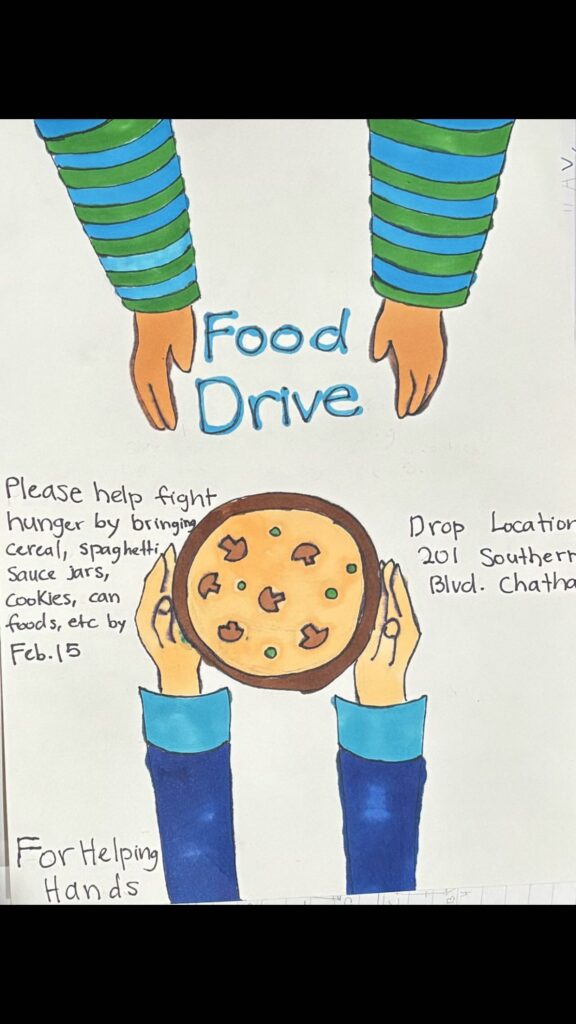 Food
Drive
Please help fight
hunger by bringing
cereal, spaghetti
Sauce Jars,
cookies, can
foods, etc by
Feb.15
Drop Location
201 Southern
Blvd. Chatha
For Helping
Hands